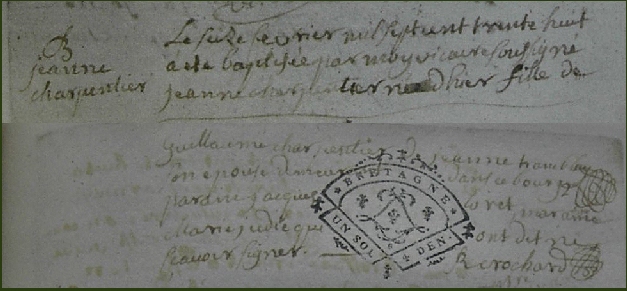 B
jeanne
charpentier
Le seize fevrier mil sept cent trente huit
a eté baptisée par moy vicaire soussigné
jeanne charpentier née d'hier fille de
guillaume charpentier jeanne
son epouse dans ce bourg
parain jacque et maraine
marie ont dit ne
scavoir signer.
R crochard
BRETAGNE
UN SOL
DEN.